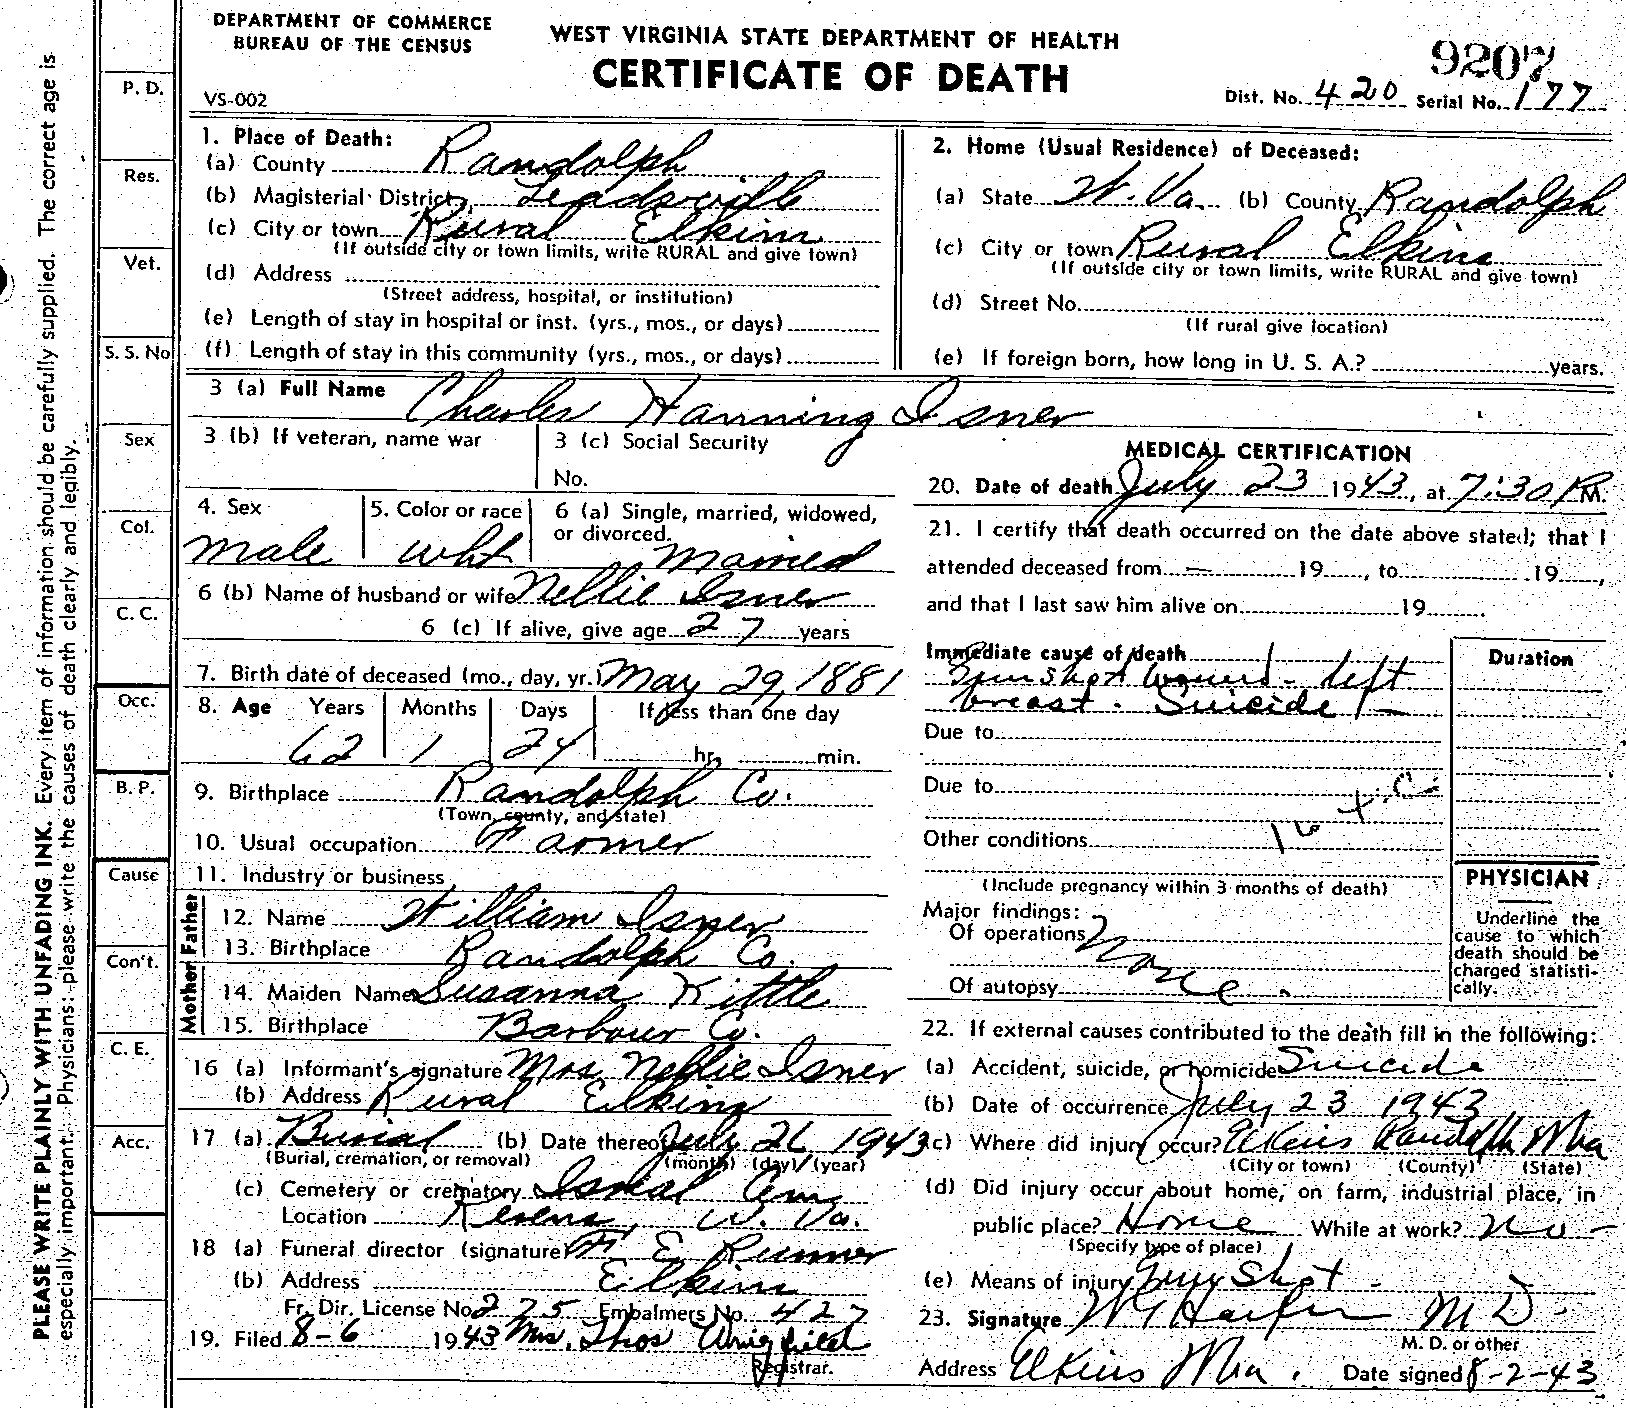 DEPARTMENT OF COMMERCE
BUREAU OF THE CENSUS
VS-002
WEST VIRGINIA STATE DEPARTMENT OF HEALTH
CERTIFICATE OF DEATH
9207
Dist. No. 420 Serial No. 177
PLEASE WRITE PLAINLY WITH UNFADING INK. Every item of information should be carefully supplied. The correct age is
especially important. Physicians: please write the causes of death clearly and legibly.
P. D.
Res.
Vet.
S. S. No
Sex
Col.
C. C.
Occ.
B. P.
Cause
Con't.
C. E.
Acc.
1. Place of Death:
(a) County Randolph
(b) Magisterial District Leadsville
(c) City or town Rural Elkins
(If outside city or town limits, write RURAL and give town)
(d) Address
(Street address, hospital, or institution)
(e) Length of stay in hospital or inst. (yrs., mos., or days)
(f) Length of stay in this community (yrs., mos., or days)
2. Home (Usual Residence) of Deceased:
(a) State W. Va. (b) County Randolph
(c) City or town Rural Elkins
(If outside city or town limits, write RURAL and give town)
(d) Street No.
(If rural give location)
(e) If foreign born, how long in U. S. A.? years.
3 (a) Full Name Charles Hanning Isner
3 (b) If veteran, name war
3 (c) Social Security
No.
4. Sex
male
5. Color or race
wht
6 (a) Single, married, widowed,
or divorced.
Married
6 (b) Name of husband or wife Nellie Isner
6 (c) If alive, give age 27 years
7. Birth date of deceased (mo., day, yr.) May 29, 1881
8. Age Years Months Days If less than one day
62 1 24 hr. min.
9. Birthplace Randolph Co.
(Town, county, and state)
10. Usual occupation Farmer
11. Industry or business
Father
12. Name William Isner
13. Birthplace Randolph Co.
Mother
14. Maiden Name Susanna Kittle
15. Birthplace Barbour Co.
16 (a) Informant's signature Mrs Nellie Isner
(b) Address Rural Elkins
17 (a) Burial (b) Date thereof July 26 1943
(Burial, cremation, or removal) (month) (day) (year)
(c) Cemetery or crematory
Location Kerens, W. Va.
18 (a) Funeral director (signature) F E Runner
(b) Address Elkins
Fr. Dir. License No. 275 Embalmers No. 427
19. Filed 8-6 1943 Mrs. Thos
Registrar.
MEDICAL CERTIFICATION
20. Date of death July 23 1943, at 7:30 P.M.
21. I certify that death occurred on the date above stated; that I
attended deceased from — 19 , to 19 ,
and that I last saw him alive on 19
Immediate cause of death
Gun shot wound - left
breast. Suicide
Due to
Due to
Other conditions
(Include pregnancy within 3 months of death)
Major findings:
Of operations None.
Of autopsy
Duration
PHYSICIAN
Underline the
cause to which
death should be
charged statisti-
cally.
22. If external causes contributed to the death fill in the following:
(a) Accident, suicide, or homicide Suicide
(b) Date of occurrence July 23 1943
(c) Where did injury occur? Elkins Randolph WVa
(City or town) (County) (State)
(d) Did injury occur about home, on farm, industrial place, in
public place? Home While at work? no -
(Specify type of place)
(e) Means of injury Gun Shot -
23. Signature M D.
M. D. or other
Address Elkins WVa. Date signed 8-2-43